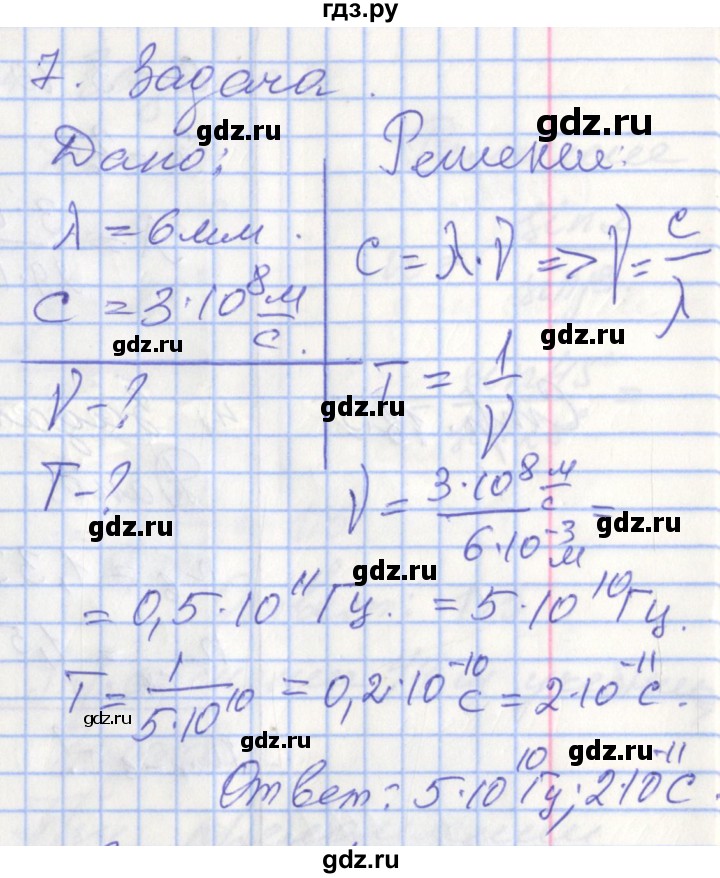 гдз.ру
7. Задача.
gdz.ru
gdz.ru
Дано:
Решение:
λ = 6 мм.
c = λ·ν => ν = c/λ
c = 3·10⁸ м/с.
gdz.ru
gdz.ru
ν - ?
T = 1/ν
gdz.ru
T - ?
ν = 3·10⁸ м/с / 6·10⁻³ м =
gdz.ru
gdz.ru
gdz.ru
= 0,5·10¹¹ Гц. = 5·10¹⁰ Гц.
T = 1/5·10¹⁰ = 0,2·10⁻¹⁰ с = 2·10⁻¹¹ с.
gdz.ru
gdz.ru
gdz.ru
Ответ: 5·10¹⁰ Гц; 2·10⁻¹¹ с.
gdz.ru